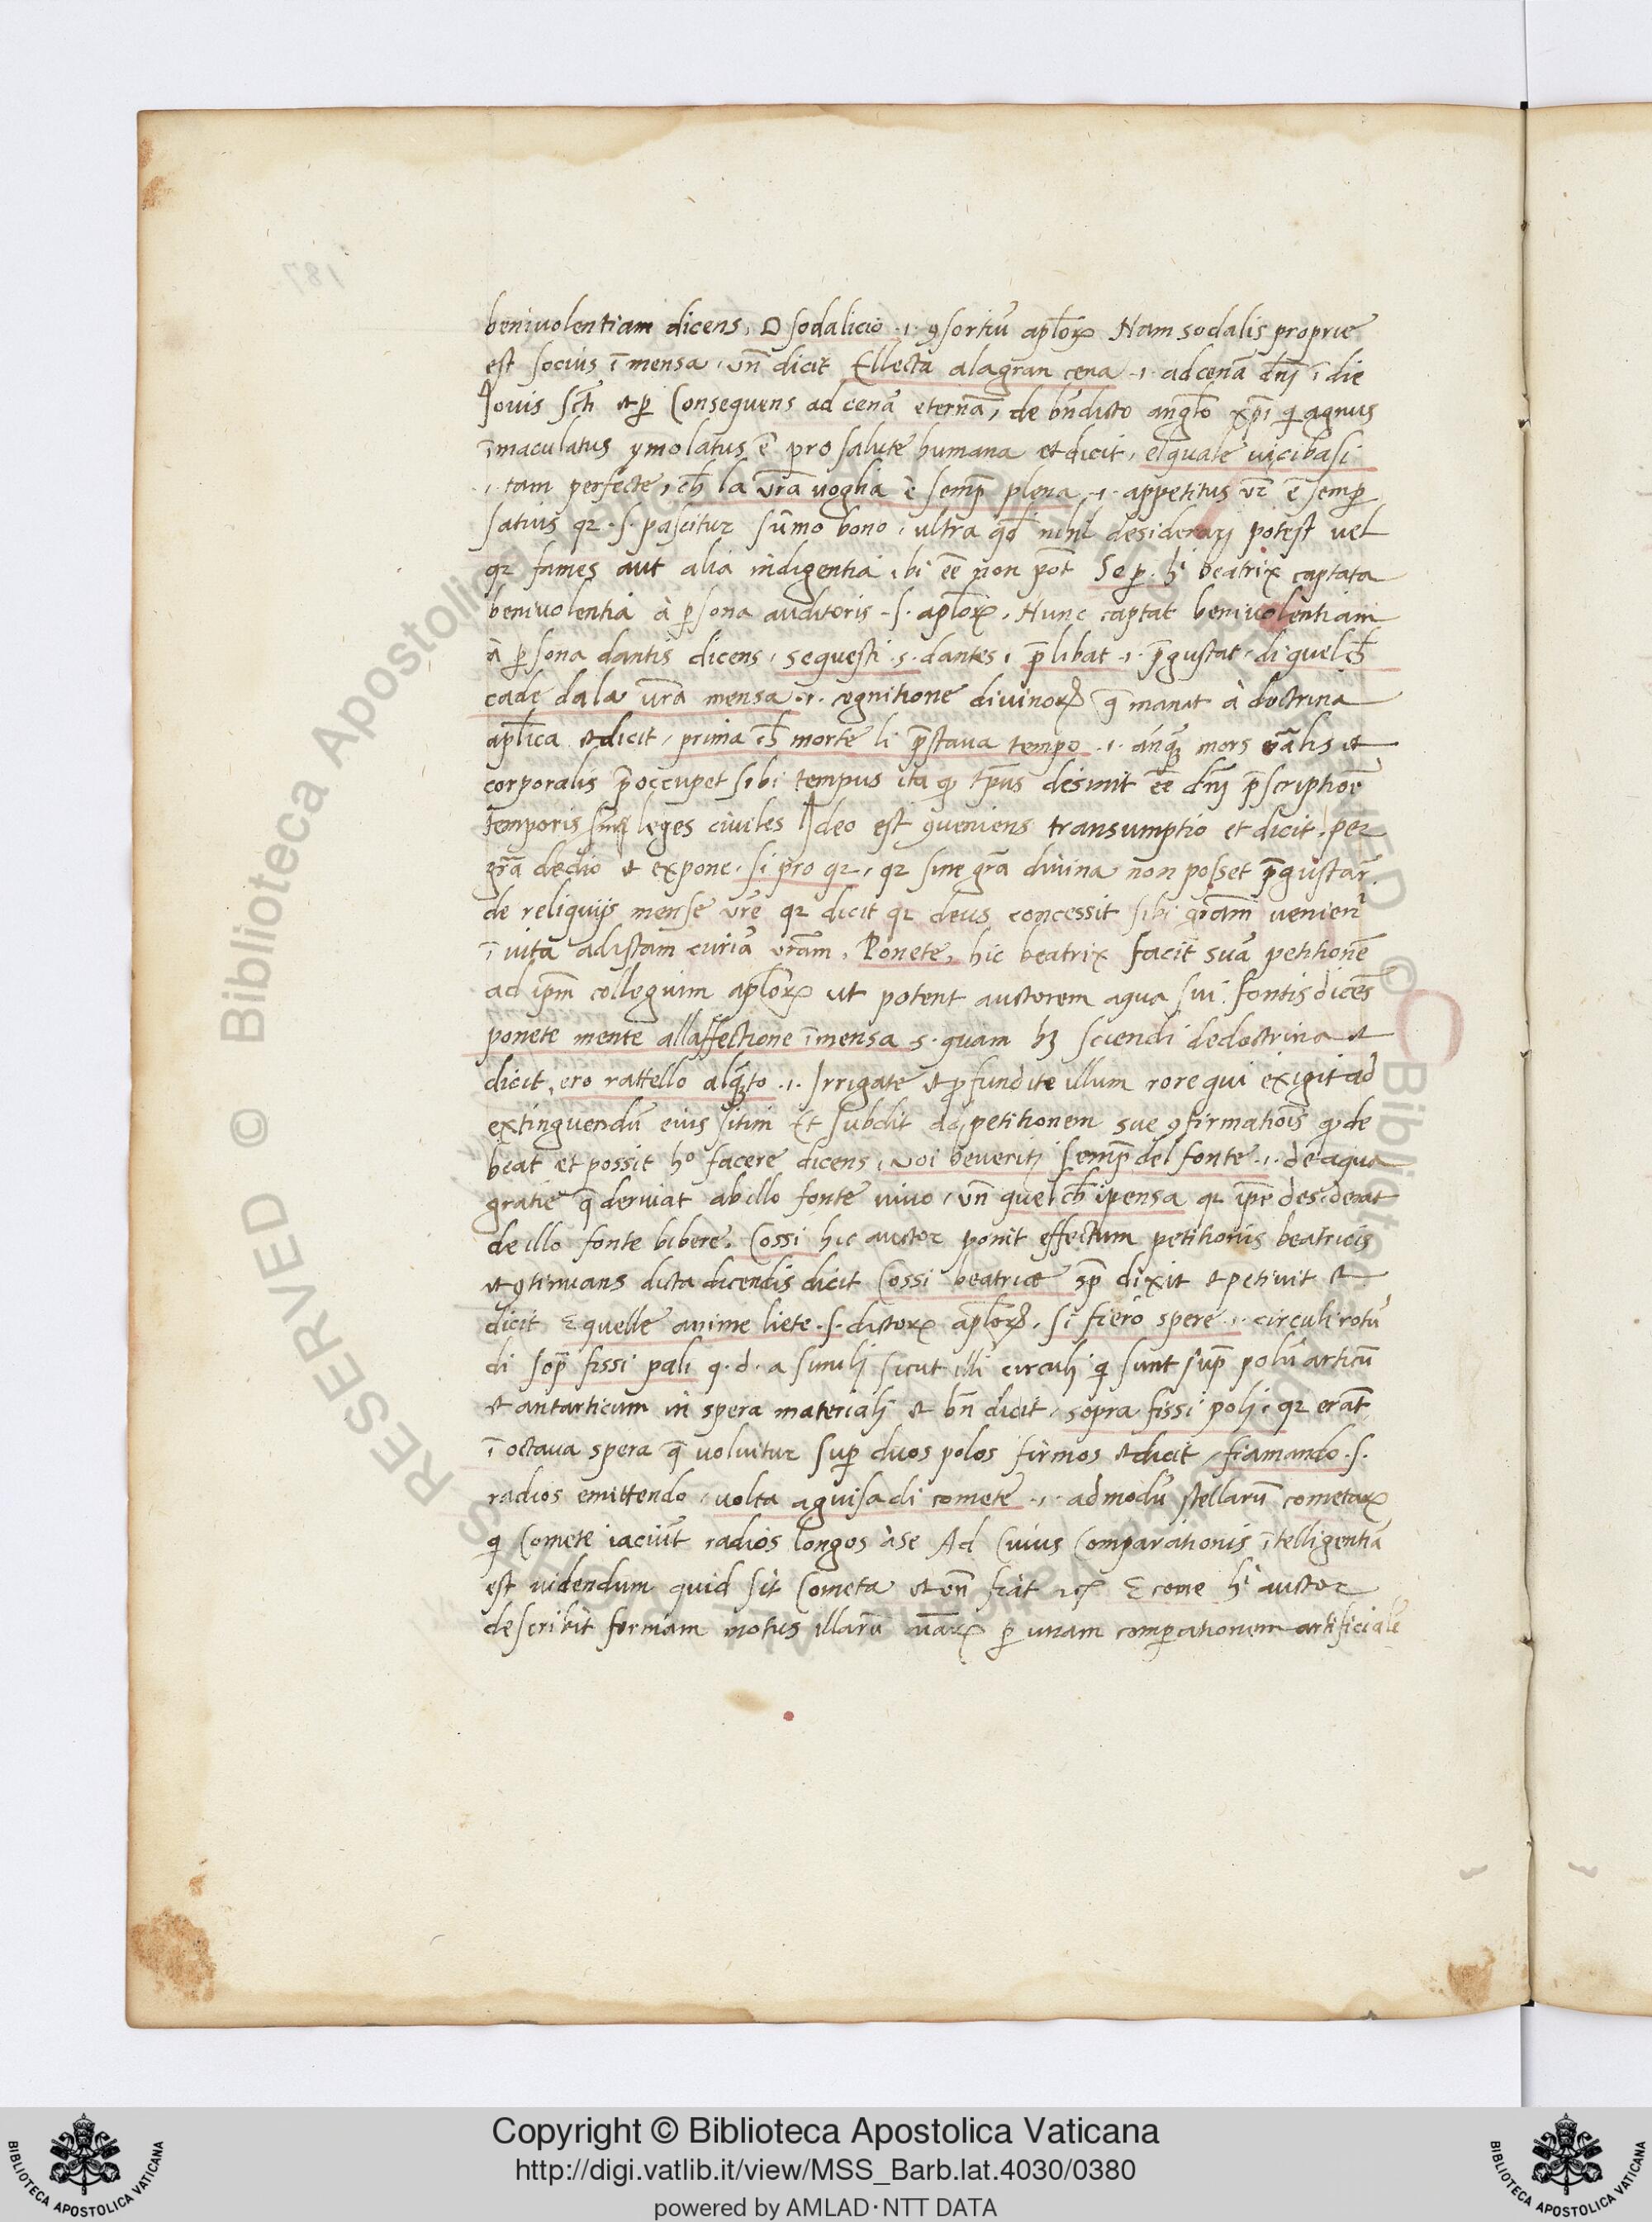 187
beniuolentiam dicens, O sodalicio .i. ꝯsortiū apl̄oꝝ Nam sodalis proprie
est socius ī mensa, vn̄ dicit Ellecta alagran cena .i. ad cenā dn̄i ī die
Jouis sc̄ti et ꝑ Consequens ad cenā eternā, de bn̄dicto xp̄i qi agnus
īmaculatus ymolatus ē pro salute humana et dicit, elquale uicibasi
.i. tam perfecte, ch̄ la vr̄a uoglia è semp̄ plena .i. appetitus vr̄ ē semꝑ
satius qꝛ .s. pascitur sūmo bono, ultra qd̄ nihil desiderarj potest vel
qꝛ fames aut alia indigentia ibi ēē non pōt Se ꝑ. hi beatrix captata
beniuolentia à ꝑsona auditoris .s. apl̄oꝝ, Nunc captat beniuolentiam
à ꝑsona dantis dicens, se questi .s. dantes, p̄libat .i. p̄gustat, di quel ch̄
cade dala vr̄a mensa .i. cognitione diuinoꝝ q̄ manat à doctrina
apl̄ica et dicit, prima ch̄ morte li p̄staua tempo .i. mors et
corporalis p̄occupet sibi tempus ita qꝫ tp̄us desinit ēē dn̄j p̄scriptiōē
temporis leges ciuiles Ideo est ꝯueniens transumptio et dicit, per
gr̄a dedio et expone, si pro qꝛ, qꝛ sine gr̄a diuina non posset p̄gustar̄
de reliquijs mense vr̄e qꝛ dicit qꝛ deus concessit sibi gr̄am
ī vita ad istam curiā vr̄am, Ponete, hic beatrix facit suā petitionē
ad ip̄m collegium apl̄oꝝ ut potent auctorem aqua sui fontis dicēs
ponete mente allaffectione īmensa .s. quam hꝫ sciendi de doctrina et
dicit, ero rattello alqꝫto .i. Irrigate et ꝓfundite illum rore qui exigit ad
extinguendū eius sitim Et subdit petitionem sue ꝯfirmatiōis qꝫ de
beat et possit ho facere dicens, voi beueritj semp̄ del fonte .i. de aqua
gratie q̄ deriuat ab illo fonte viuo, vn̄ quel ch̄ ipensa qꝛ ip̄e desiderat
de illo fonte bibere. Cossi hic auctor ponit effectum petitionis beatricis
et ꝯtinuans dicta dicendis dicit Cossi beatrice sp̄ dixit et petiuit et
dicit E quelle anime liete .s. dictoꝝ apl̄oꝝ, si fiero spere .i. circuli rotū
di sop̄ fissi pali q. d. a similj sicut illi circulj qi sunt sup̄ polū articū
et antarticum in spera materialj et bn̄ dicit, sopra fissi polj, qꝛ erāt
ī octaua spera q̄ voluitur suꝑ duos polos firmos et dicit, fiamando .s.
radios emittendo, uolta aguisa di comete .i. ad modū stellarū cometaꝝ
qi Comete iaciūt radios longos àse Ad Cuius Comparationis ītelligentiā
est uidendum quid sit Cometa et vn̄ fiat E come hi auctor
describit formam motus illarū aīaꝝ ꝑ unam comꝑationem artificialē
RESERVED © Biblioteca Apostolica Vaticana
Copyright © Biblioteca Apostolica Vaticana
http://digi.vatlib.it/view/MSS_Barb.lat.4030/0380
powered by AMLAD·NTT DATA
BIBLIOTECA APOSTOLICA VATICANA
BIBLIOTECA APOSTOLICA VATICANA